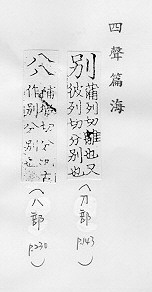 四聲篇海
別
蒲列切離也又
彼列切分別也
(刀部 P.143)
𠔁
作別分別也
(八部 P.230)